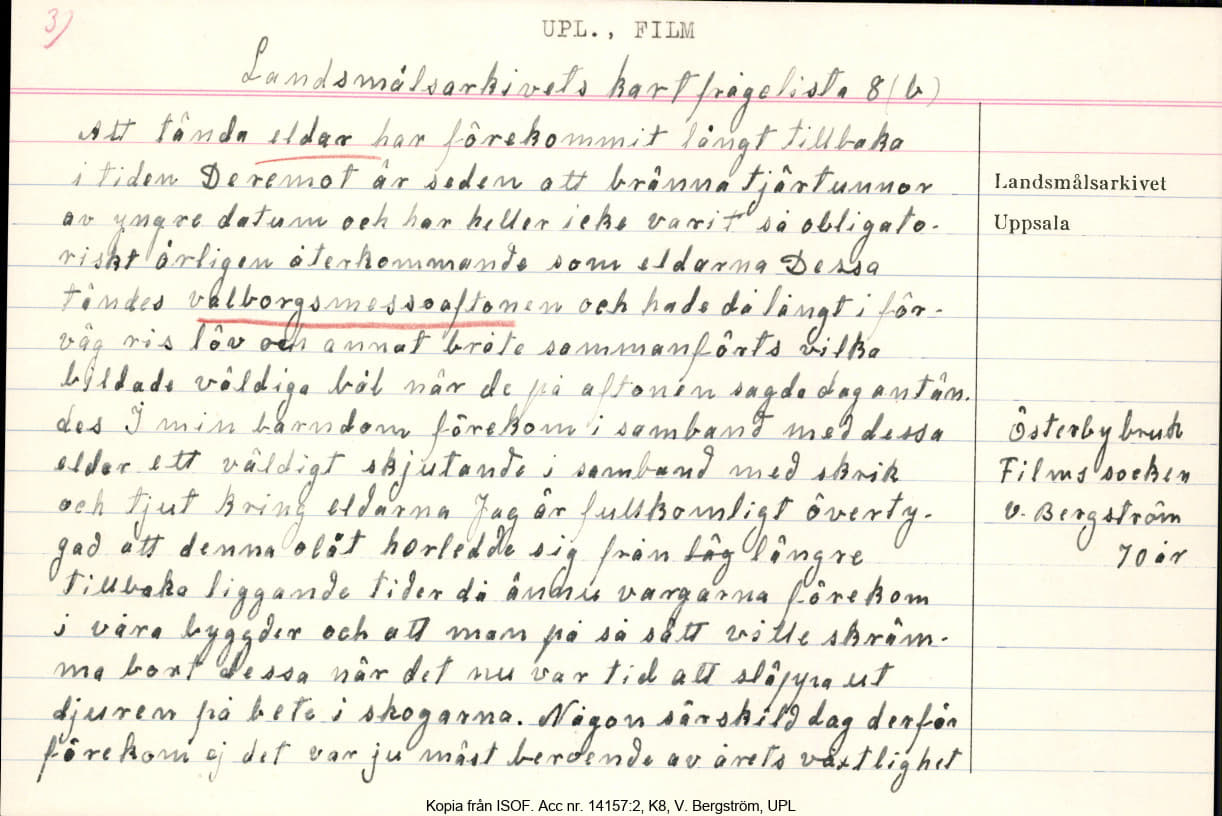 3)
UPL., FILM
Landsmålsarkivets kartfrågelista 8 (b)
Att tända eldar har förekommit långt tillbaka
i tiden Deremot är seden att bränna tjärtunnor
av yngre datum och har heller icke varit så obligato-
riskt årligen återkommande som eldarna Dessa
tändes valborgsmessoaftonen och hade då långt i för-
väg ris löv och annat bråte sammanförts vilka
bildade väldiga bål när de på aftonen sagda dag antän-
des I min barndom förekom i samband med dessa
eldar ett väldigt skjutande i samband med skrik
och tjut kring eldarna Jag är fullkomligt överty-
gad att denna olåt horledde sig från längre
tillbaka liggande tider då ännu vargarna förekom
i våra byggder och att man på så sätt ville skräm-
ma bort dessa när det nu var tid att släppa ut
djuren på bete i skogarna. Någon särskild dag derför
förekom ej det var ju mäst beroende av årets växtlighet
Landsmålsarkivet
Uppsala
Österbybruk
Films socken
V. Bergström
70 år
Kopia från ISOF. Acc nr. 14157:2, K8, V. Bergström, UPL